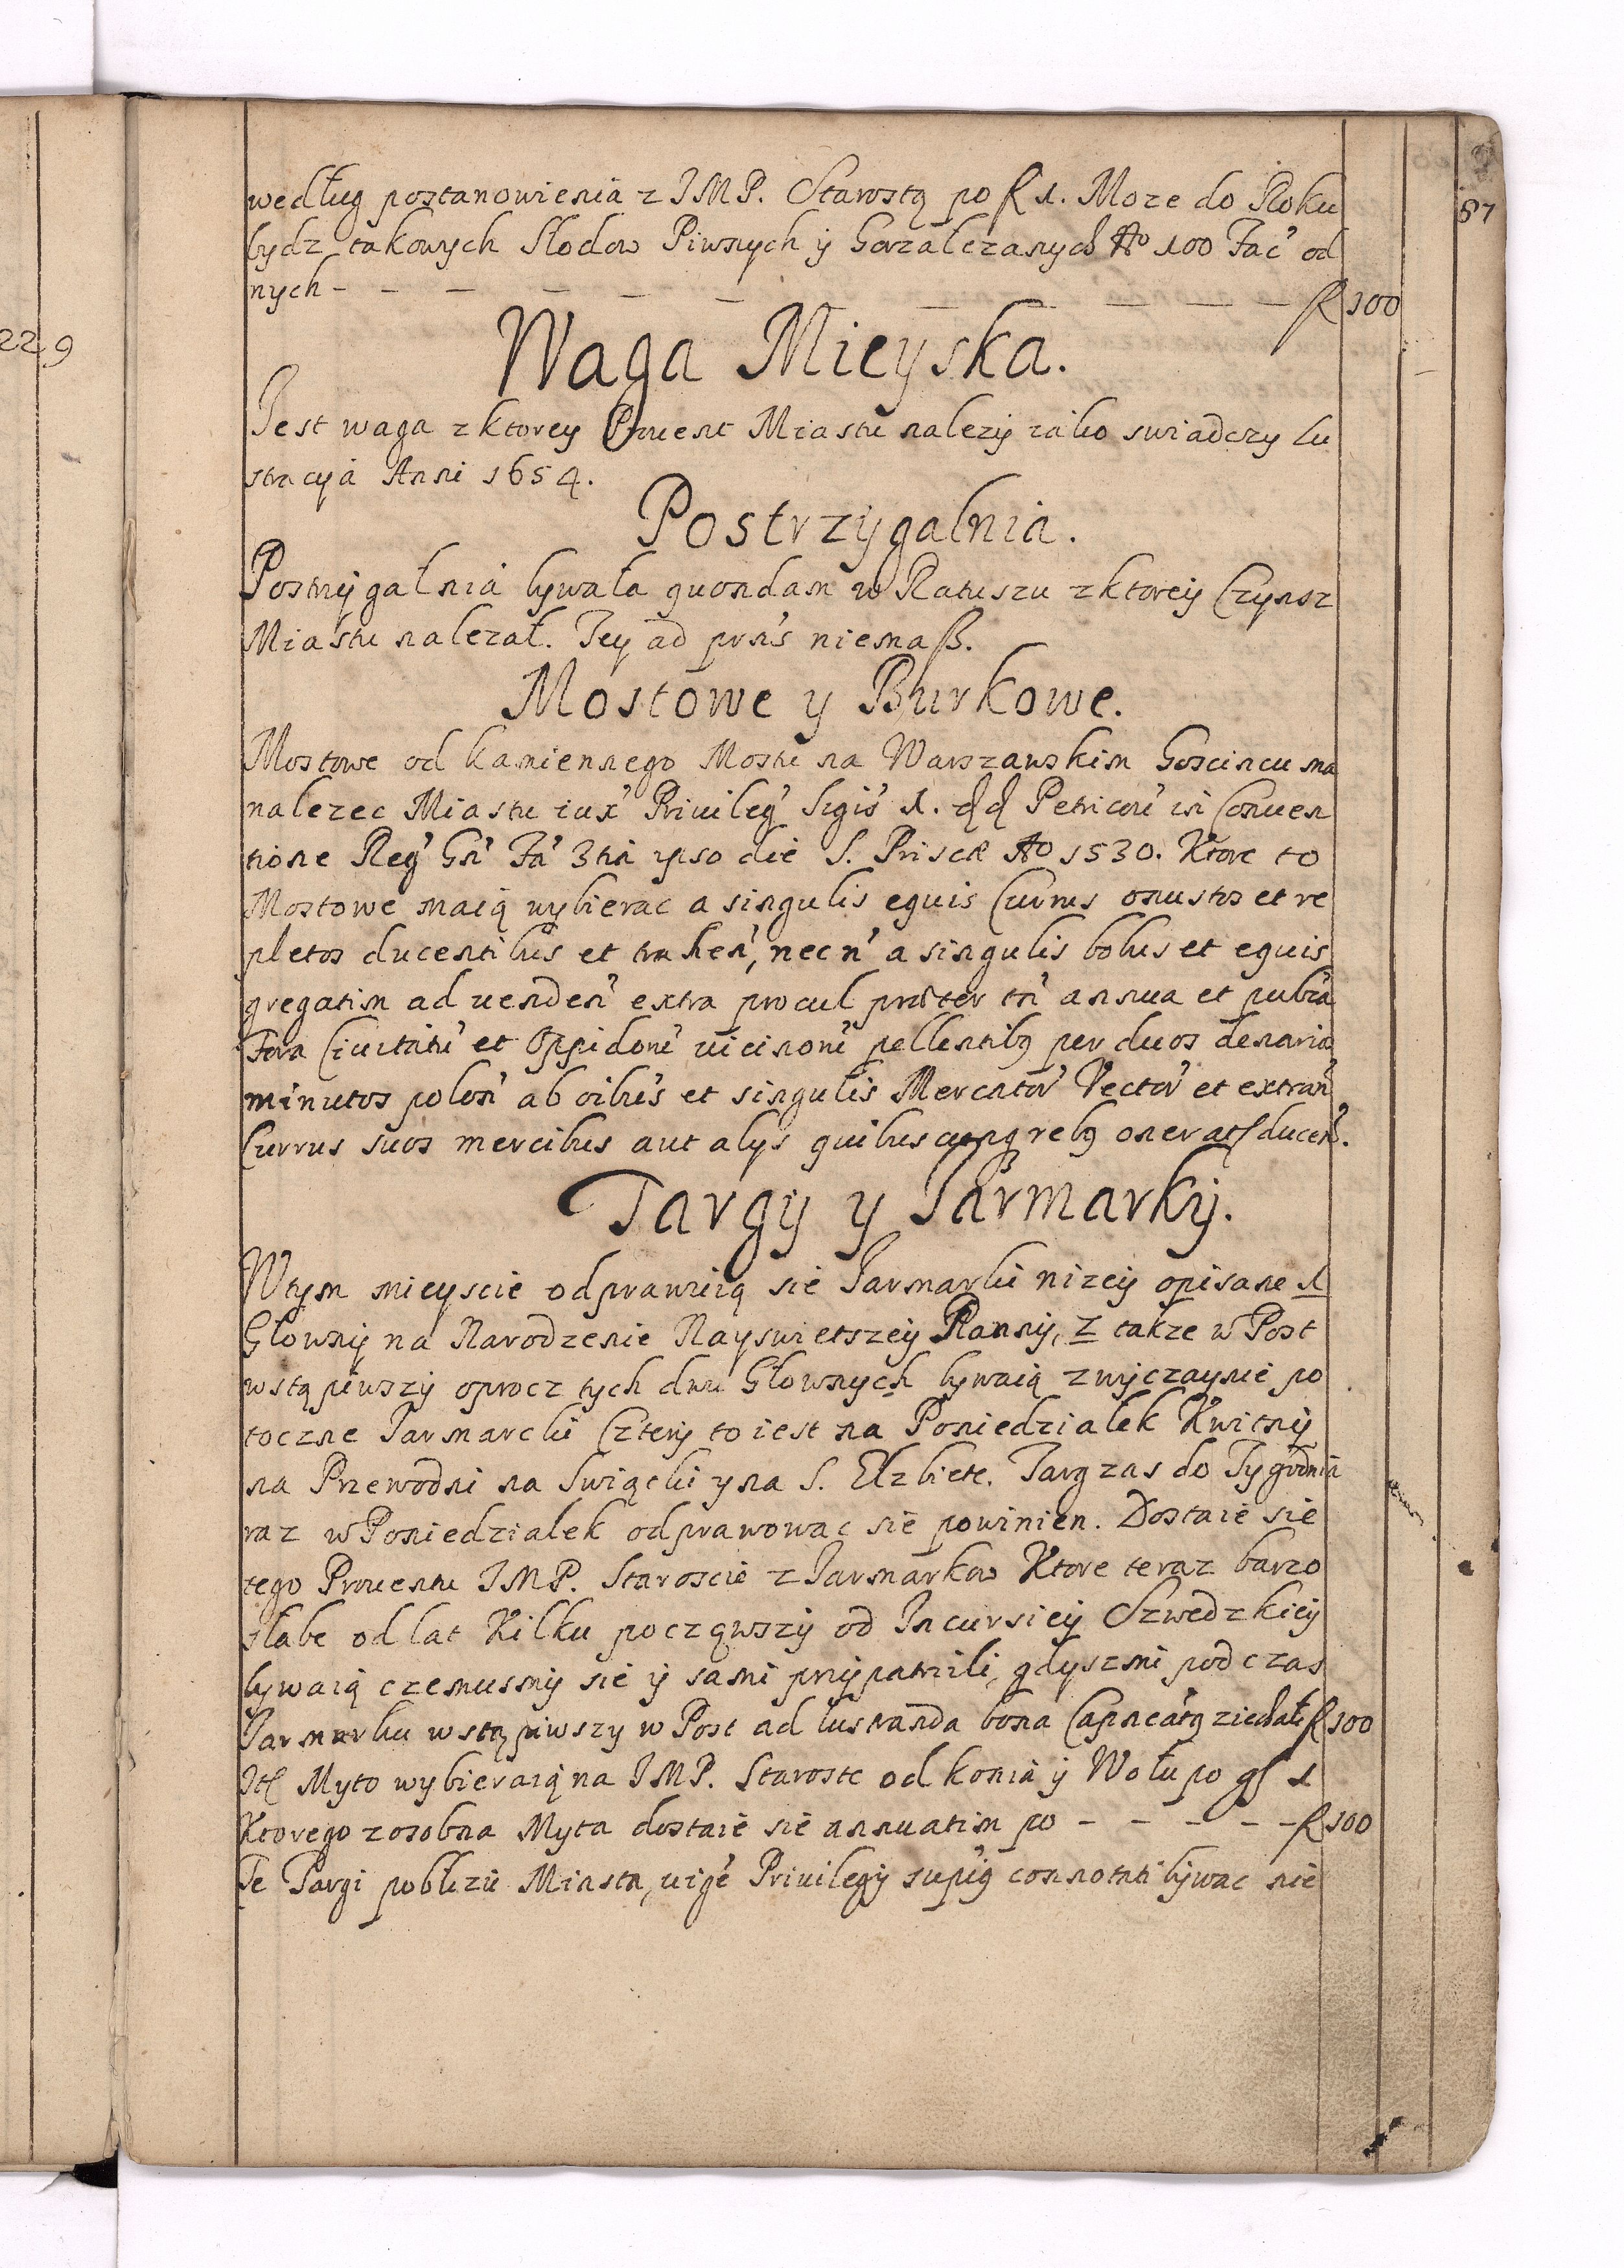 według postanowienia z JMP. Starostą po fl 1. Może do Roku
bydz takowych Słodow Piwnych ÿ Gorzalczanych No 100 Fac' od
nych - - - - - - - - - - fl 100
87
229
Waga Mieyska.
Jest waga z ktorey Prouent Miastu nalezÿ iako swiadczy Lu
stracyia Anni 1654.
Postrzÿgalnia.
Postrzÿgalniá bywała quondam w Ratuszu z ktoreÿ Czynsz
Miastu nalezał. Jey ad prn's niemaß.
Mostowe y Burkowe.
Mostowe od kamiennego Mostu na Warszawskim Goscincu ma
nalezec Miastu iux' Priuileg' Sigis' 1. dd Petricou' in Conuen
tione Reg' Gn' Fa' 3tia ipso die S. Priscæ Ao 1530. Ktore to
Mostowe maią wybierac a singulis equis Currus onustos et re
pletos ducentibus et trahen', nec n' a singulis bobus et equis
gregatim ad uenden' extra procul præter tn' annua et publ'a
Fora Ciuitatu' et Oppidoru' uicinoru' pellentibq per duos denarios
minutos polon' ab oibu's et singulis Mercator' Vector' et extran'
Currus suos mercibus aut alÿs quibuscunq rebq onerat ducen'.
Targÿ y Jarmarkÿ.
Wtym mieyscie odprawuią sie Jarmarki nizeÿ opisane 1
Głownÿ na Narodzenie Nayswietszeÿ Pannÿ, 2 takze w Post
wstąpiwszÿ oprocz tych dwu Głownych bywaią zwÿczaynie po
toczne Jarmarcki Czterÿ to iest na Poniedziałek Kwitnÿ
na Przewodni na Swiąthi y na S. Elzbiete. Targ zas do Tygodnia
raz w Poniedziałek odprawowac sie powinien. Dostaie sie
tego Prouentu JMP. Staroscie z Jarmarkow Ktore teraz barzo
słabe od lat Kilku począwszÿ od Incursieÿ Szwedzkieÿ
bywaią czemusmÿ sie ÿ sami przÿpatrzili, gdyszmi pod czas
Jarmarku wstąpiwszy w Post ad lustranda bona ziechali fl 100
Myto wybieraią na JMP. Staroste od konia ÿ Wołu po gſ 1
Ktorego zosobna Myta dostaie sie annuatim po - - - - - fl 100
Te Targi pobłizu Miasta, uig'e Priuilegÿ connotati bÿwac nie